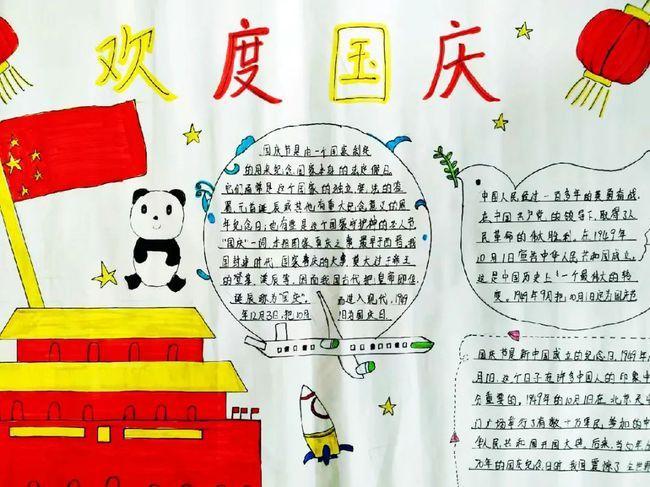 欢度国庆
国庆节是由一个国家制定
的用来纪念国家本身的法定假日。
它们通常是这个国家的独立、宪法的签
署、元首诞辰或其他有重大纪念意义的周
年纪念日；也有些是这个国家守护神的圣人节
"国庆"一词，本指国家喜庆之事，最早于西晋，我
国封建时代，国家喜庆的大事，莫大过于帝王
的登基、诞辰等，因而我国古代把皇帝即位、
诞辰称为"国庆"。 而进入现代，1949
年12月3日，把10月1日为国庆日
中国人民经过一百多年的英勇奋战，
在中国共产党的领导下，取得了人
民革命的伟大胜利，在1949年
10月1日宣告中华人民共和国成立，
这是中国历史上一个最伟大的转
变。1949年9月把10月1日定为国庆节
国庆节是新中国成立的纪念日，1949年
月1日，这个日子在许多中国人的印象中
分重要的，1949年的10月1日在北京天安
门广场举行了有数十万军民参加的中
华人民共和国开国大典，后来，当
70年的国庆纪念日时，我国震惊了全世